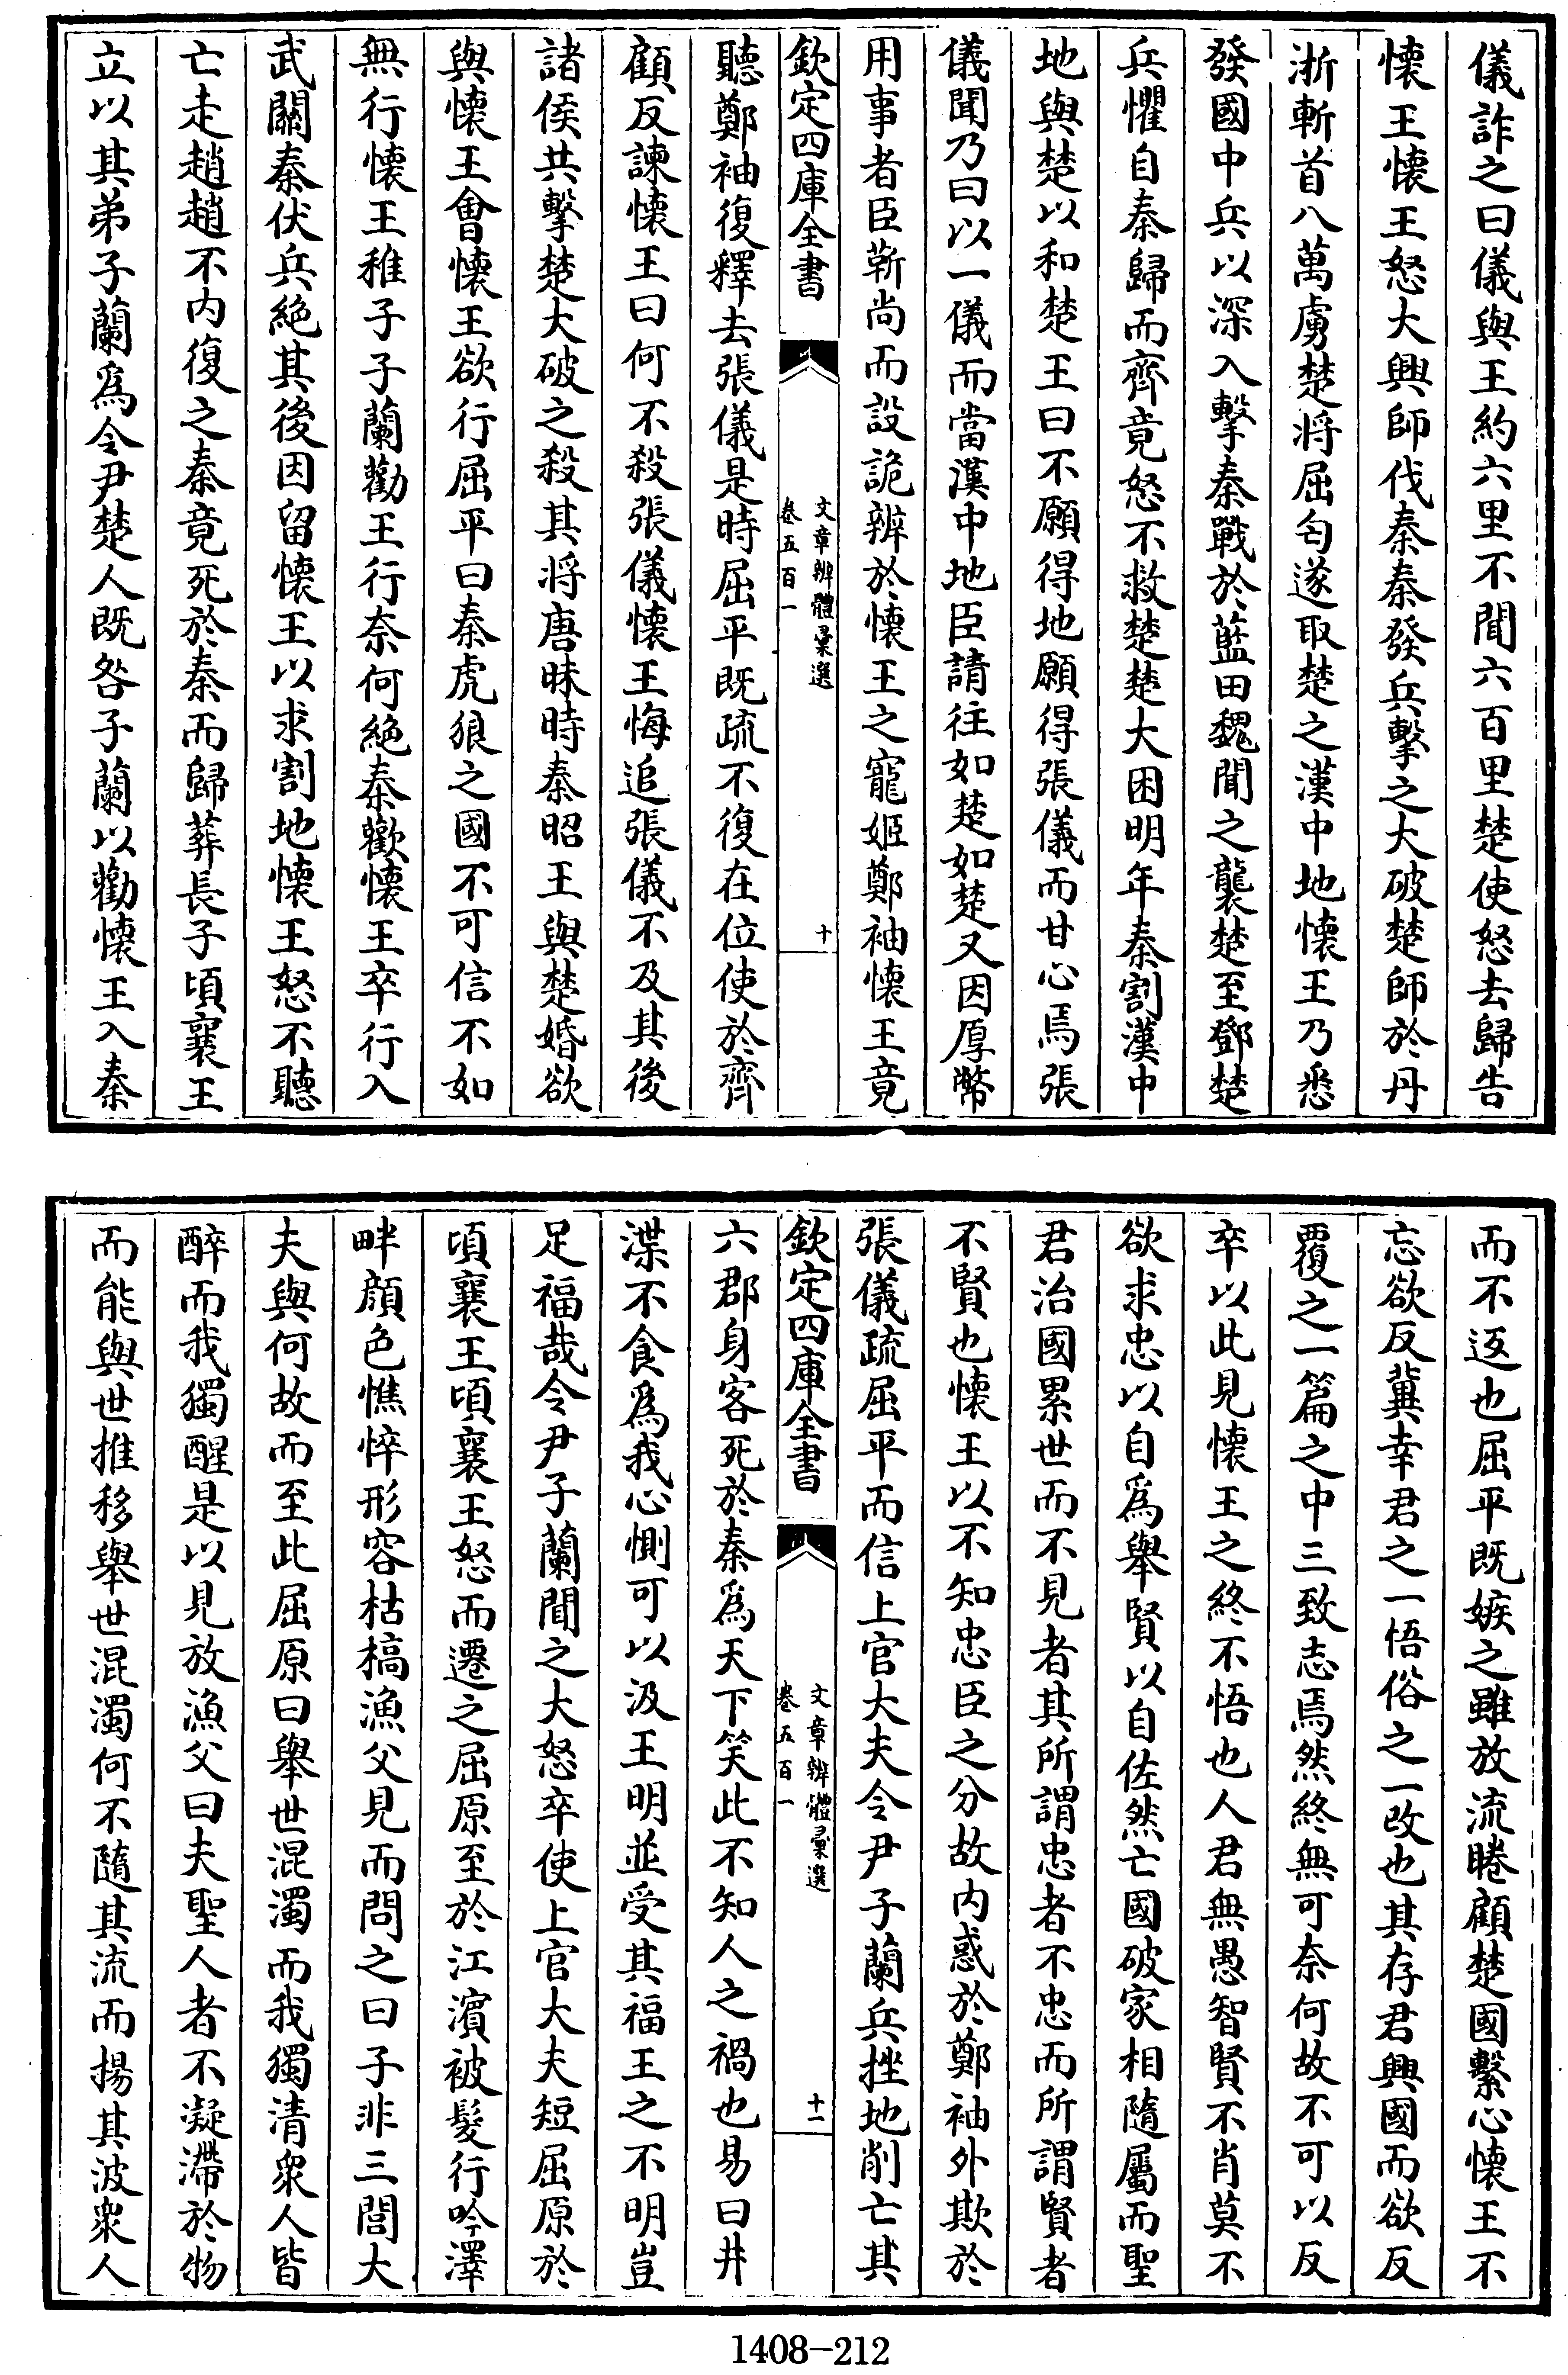 儀詐之曰儀與王約六里不聞六百里楚使怒去歸告
懷王懷王怒大興師伐秦秦發兵擊之大破楚師於丹
浙斬首八萬虜楚將屈匄遂取楚之漢中地懷王乃悉
發國中兵以深入擊秦戰於藍田魏聞之襲楚至鄧楚
兵懼自秦歸而齊竟怒不救楚楚大困明年秦割漢中
地與楚以和楚王曰不願得地願得張儀而甘心焉張
儀聞乃曰以一儀而當漢中地臣請往如楚如楚又因厚幣
用事者臣靳尚而設詭辨於懷王之寵姬鄭袖懷王竟
欽定四庫全書
文章辨體彙選
卷五百一
十
聽鄭袖復釋去張儀是時屈平既疏不復在位使於齊
顧反諫懷王曰何不殺張儀懷王悔追張儀不及其後
諸侯共擊楚大破之殺其將唐昧時秦昭王與楚婚欲
與懷王會懷王欲行屈平曰秦虎狼之國不可信不如
無行懷王稚子子蘭勸王行奈何絶秦歡懷王卒行入
武關秦伏兵絶其後因留懷王以求割地懷王怒不聽
亡走趙趙不内復之秦竟死於秦而歸葬長子頃襄王
立以其弟子蘭爲令尹楚人既咎子蘭以勸懷王入秦
而不返也屈平既嫉之雖放流睠顧楚國繫心懷王不
忘欲反冀幸君之一悟俗之一改也其存君興國而欲反
覆之一篇之中三致志焉然終無可奈何故不可以反
卒以此見懷王之終不悟也人君無愚智賢不肖莫不
欲求忠以自爲舉賢以自佐然亡國破家相隨屬而聖
君治國累世而不見者其所謂忠者不忠而所謂賢者
不賢也懷王以不知忠臣之分故内惑於鄭袖外欺於
張儀疏屈平而信上官大夫令尹子蘭兵挫地削亡其
欽定四庫全書
文章辨體彙選
卷五百一
十一
六郡身客死於秦爲天下笑此不知人之禍也易曰井
渫不食爲我心惻可以汲王明並受其福王之不明豈
足福哉令尹子蘭聞之大怒卒使上官大夫短屈原於
頃襄王頃襄王怒而遷之屈原至於江濱被髮行吟澤
畔顔色憔悴形容枯槁漁父見而問之曰子非三閭大
夫與何故而至此屈原曰舉世混濁而我獨清衆人皆
醉而我獨醒是以見放漁父曰夫聖人者不凝滯於物
而能與世推移舉世混濁何不隨其流而揚其波衆人
1408-212